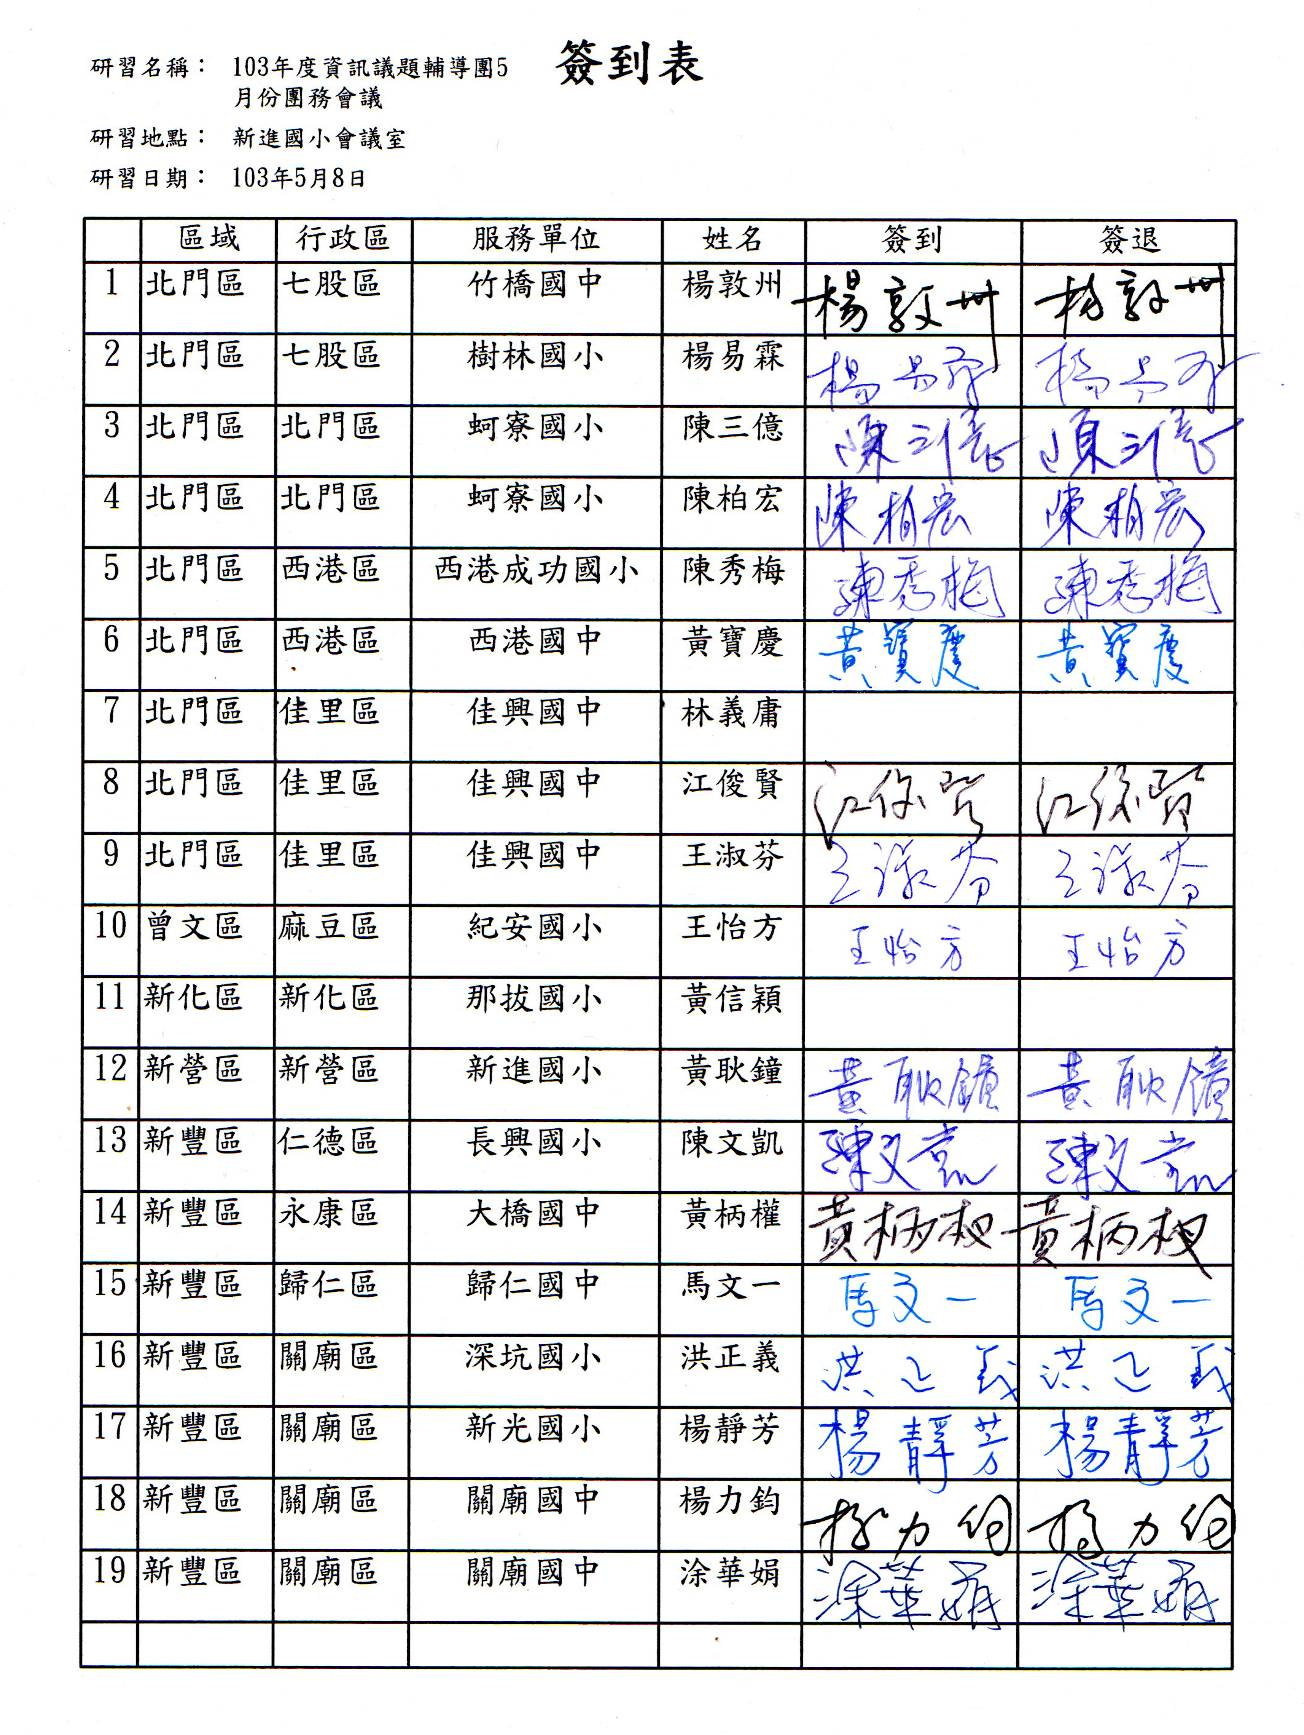 簽到表
研習名稱： 103年度資訊議題輔導團5
月份團務會議
研習地點： 新進國小會議室
研習日期： 103年5月8日
區域 行政區 服務單位 姓名 簽到 簽退
1 北門區 七股區 竹橋國中 楊敦州 楊敦州 楊敦州
2 北門區 七股區 樹林國小 楊易霖 楊易霖 楊易霖
3 北門區 北門區 蚵寮國小 陳三億 陳三億 陳三億
4 北門區 北門區 蚵寮國小 陳柏宏 陳柏宏 陳柏宏
5 北門區 西港區 西港成功國小 陳秀梅 陳秀梅 陳秀梅
6 北門區 西港區 西港國中 黃寶慶 黃寶慶 黃寶慶
7 北門區 佳里區 佳興國中 林義庸
8 北門區 佳里區 佳興國中 江俊賢 江俊賢 江俊賢
9 北門區 佳里區 佳興國中 王淑芬 王淑芬 王淑芬
10 曾文區 麻豆區 紀安國小 王怡方 王怡方 王怡方
11 新化區 新化區 那拔國小 黃信穎
12 新營區 新營區 新進國小 黃耿鐘 黃耿鐘 黃耿鐘
13 新豐區 仁德區 長興國小 陳文凱 陳文凱 陳文凱
14 新豐區 永康區 大橋國中 黃柄權 黃柄权 黃柄权
15 新豐區 歸仁區 歸仁國中 馬文一 馬文一 馬文一
16 新豐區 關廟區 深坑國小 洪正義 洪正義 洪正義
17 新豐區 關廟區 新光國小 楊靜芳 楊靜芳 楊靜芳
18 新豐區 關廟區 關廟國中 楊力鈞 楊力鈞 楊力鈞
19 新豐區 關廟區 關廟國中 涂華娟 涂華娟 涂華娟